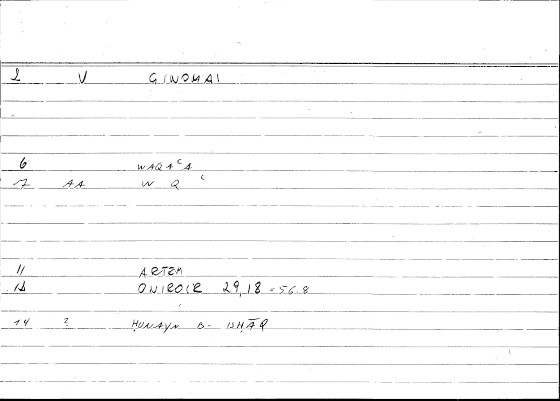 2 V GINOMAI
6 WAQAʿA
7 AA W Q ʿ
11 ARTEM
12 ONIROCR 29,18 = 56.8
14 2 ḤUNAYN B- ISḤĀQ